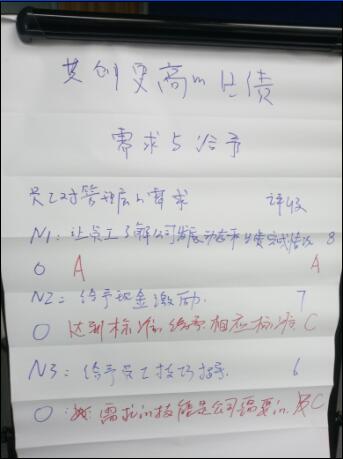 共创更高的业绩
需求与给予
员工对管理层的需求 评级
N1: 让员工了解公司发展动态和业绩完成情况 8
O A A
N2: 给予现金激励. 7
O 达到标准, 给予相应标准 C
N3: 给予员工技巧指导. 6
O: 需求的技能是公司需要的, C